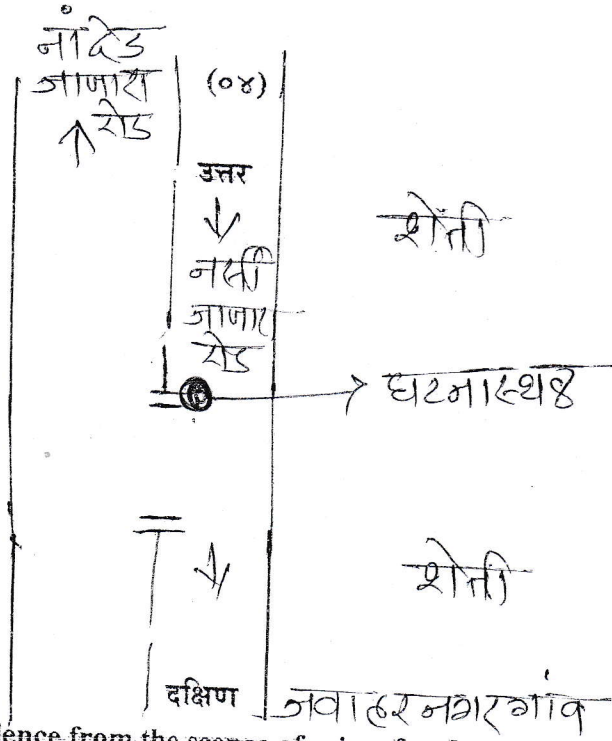 नांदेड
जाणारा
रोड
(०४)
उत्तर
नर्सी
जाणार
रोड
शेती
घटनास्थळ
शेती
दक्षिण
जवाहरनगर गांव
dence from the scence of crime for